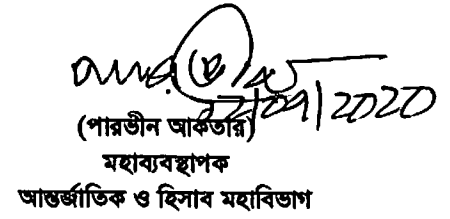 (পারভীন আকতার)
মহাব্যবস্থাপক
আন্তর্জাতিক ও হিসাব মহাবিভাগ